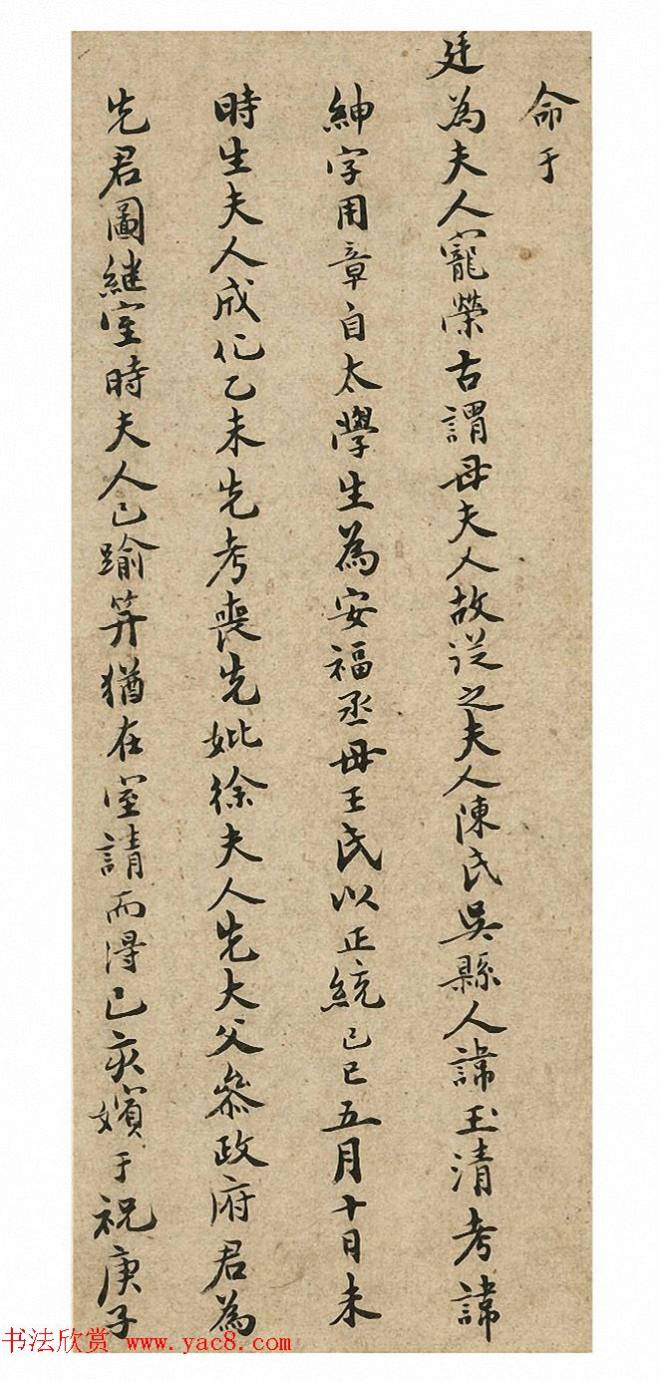 命于
廷為夫人寵榮古謂母夫人故従之夫人陳氏吳縣人諱玉清考諱
紳字用章自太學生為安福丞母王氏以正統己巳五月十日未
時生夫人成化乙未先考喪先妣徐夫人先大父叅政府君為
先君圖継室時夫人已踰筓猶在室請而得己亥嬪于祝庚子
书法欣赏 www.yac8.com